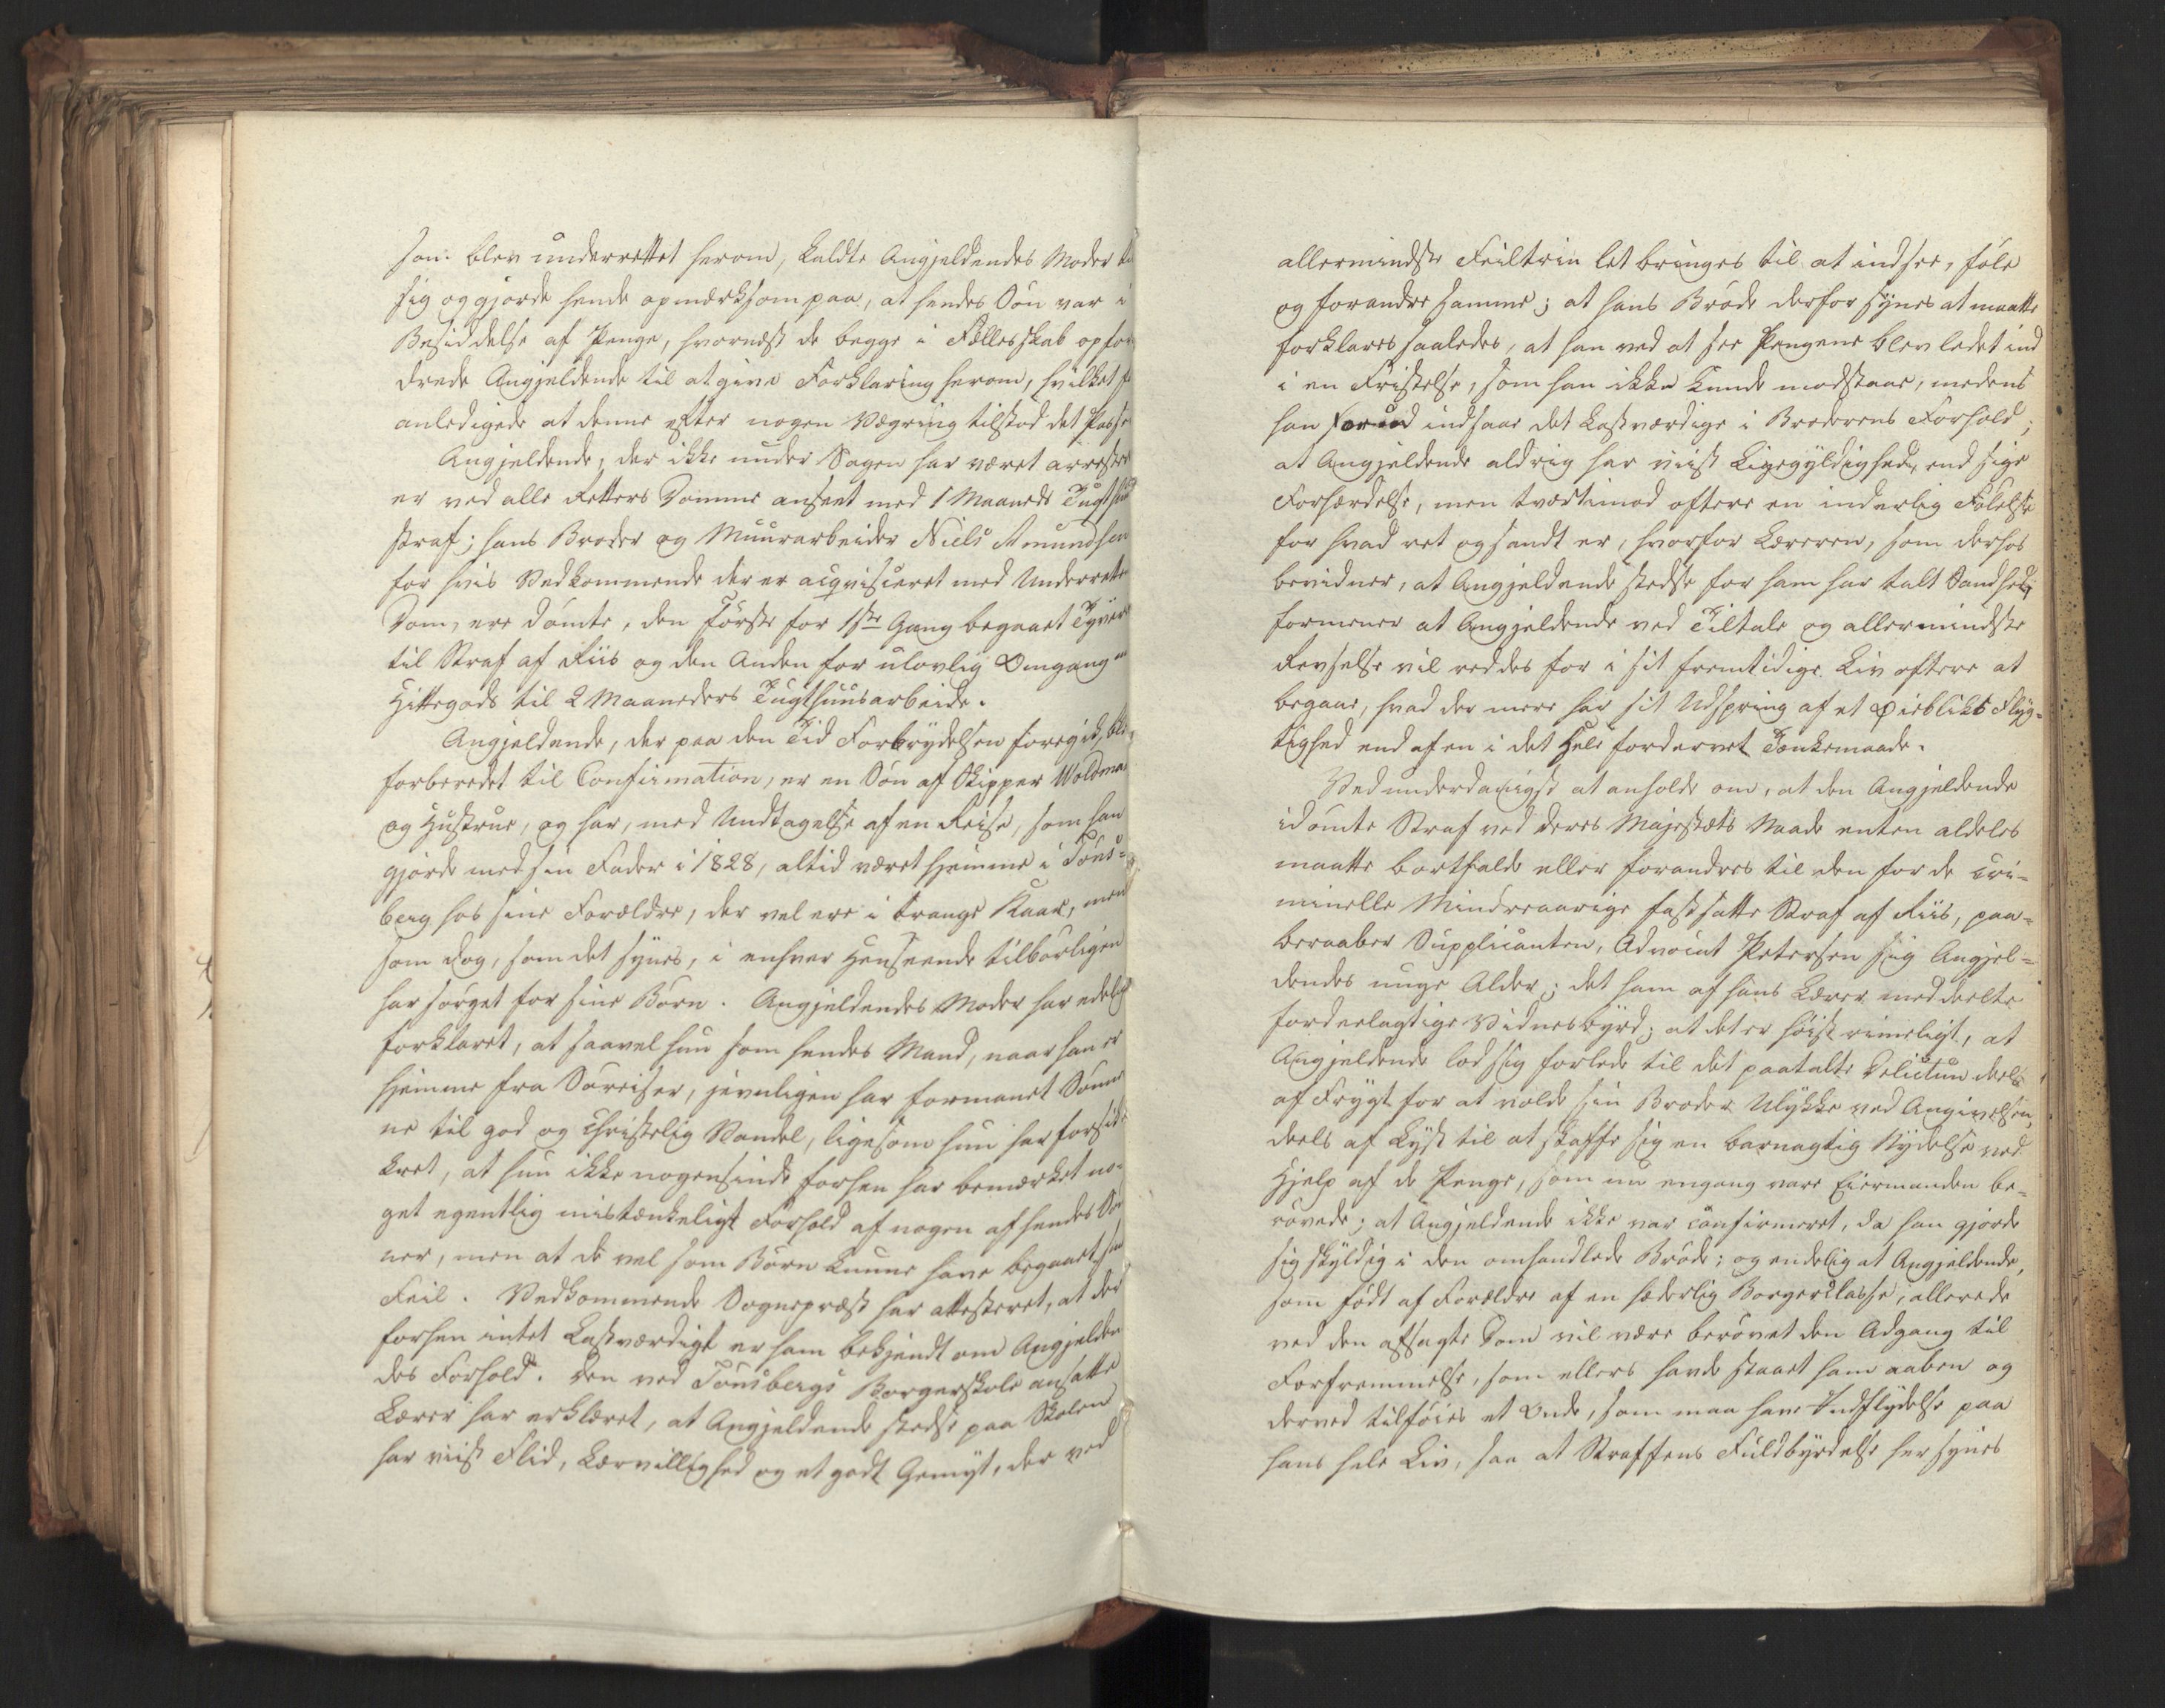 son blev underrettet herom, kaldte Angjeldendes Moder til
sig og gjorde hende opmærksom paa, at hendes Søn var i
Besiddelse af Penge, hvornæst de begge i Fællesskab opfor
drede Angjeldende til at give Forklaring herom, hvilket
anledigede at denne efter nogen Vægring tilstod det Passe
Angjeldende, der ikke under Sagen har været arresteret
er ved alle Retters Domme anseet med 1 Maaneds Tugthuus
straf; hans Broder og Muurarbeider Niels Amundsen
for hvis Vedkommende der er acqvisceret med Underrettens
Dom, ere dømte, den Første for 1ste Gang begaaet Tyveri
til Straf af Riis og den Anden for ulovlig Omgang m
Hittegods til 2 Maaneders Tugthuusarbeide.
Angjeldende, der paa den Tid Forbrydelsen foregik, blev
forberedet til Confirmation, er en Søn af Skipper Woldma
og Hustrue, og har, med Undtagelse af en Reise, som han
gjorde med sin Fader i 1828, altid været hjemme i Tøns=
berg hos sine Forældre, der vel ere i trange Kaar, men
som dog, som det synes, i enhver Henseende tilbørligen
har sørget for sine Børn. Angjeldendes Moder har edelig
forklaret, at saavel hun som hendes Mand, naar han er
hjemme fra Søreiser, jevnligen har formanet Sønner
ne til god og christelig Vandel, ligesom hun har forsik
kret, at hun ikke nogensinde forhen har bemærket no=
get egentlig mistænkeligt Forhold af nogen af hendes Søn
ner, men at de vel som Børn kunne have begaaet sm
Feil. Vedkommende Sognepræst har attesteret, at der
forhen intet Lastværdigt er ham bekjendt om Angjelden
des Forhold. Den ved Tønsbergs Borgerskole ansatte
Lærer har erklæret, at Angjeldende stedse paa Skolen
har viist Flid, Lærvillighed og et godt Gemyt, der ved
allermindste Feiltrin let bringes til at indsee, føle
og forandre samme; at hans Brøde derfor synes at maatte
forklares saaledes, at han ved at see Pengene blev ledet ind
i en Fristelse, som han ikke kunde modstaae, medens
han forud indsaae det Lastværdige i Broderens Forhold;
at Angjeldende aldrig har viist Ligegyldighed, end sige
Forhærdelse, men tværtimod oftere en inderlig Følelse
for hvad ret og sandt er, hvorfor Læreren, som derhos
bevidner, at Angjeldende stedse for ham har talt Sandhed,
formener at Angjeldende ved Tiltale og allermindste
Revselse vil reddes for i sit fremtidige Liv oftere at
begaae, hvad der mere har sit Udspring af et Øiebliks Flyg=
tighed end af en i det Hele fordervet Tænkemaade.
Ved underdanigst at anholde om, at den Angjeldende
idømte Straf ved Deres Majestæts Naade enten aldeles
maatte bortfalde eller forandres til den for de cri=
minelle Mindreaarige fastsatte Straf af Riis, paa=
beraaber Supplicanten, Advocat Petersen sig Angjel=
dendes unge Alder; det ham af hans Lærer meddeelte
fordeelagtige Vidnesbyrd; at det er høist rimeligt, at
Angjeldende lod sig forlede til det paatalte Delictum deels
af Frygt for at volde sin Broder Ulykke ved Angivelsen,
deels af Lyst til at skaffe sig en barnagtig Nydelse ved
Hjelp af de Penge, som nu engang vare Eiermanden be=
røvede; at Angjeldende ikke var confirmeret, da han gjorde
sig skyldig i den omhandlede Brøde; og endelig at Angjeldende,
som født af Forældre af en hæderlig Borgerclasse, allerede
ved den afsagte Dom vil være berøvet den Adgang til
Forfremmelse, som ellers havde staaet ham aaben og
derved tilføies et Onde, som maa have Indflydelse paa
hans hele Liv, saa at Straffens Fuldbyrdelse her synes